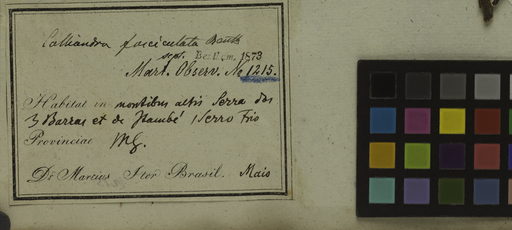 Calliandra fasciculata Benth
sept. Benth. m. 1873
Mart. Observ. No 1215.
Habitat in montibus altis Serra das
3 Barras et de Itambé / Serro Frio
Provinciae MG.
Dr Martius Iter Brasil. Maio